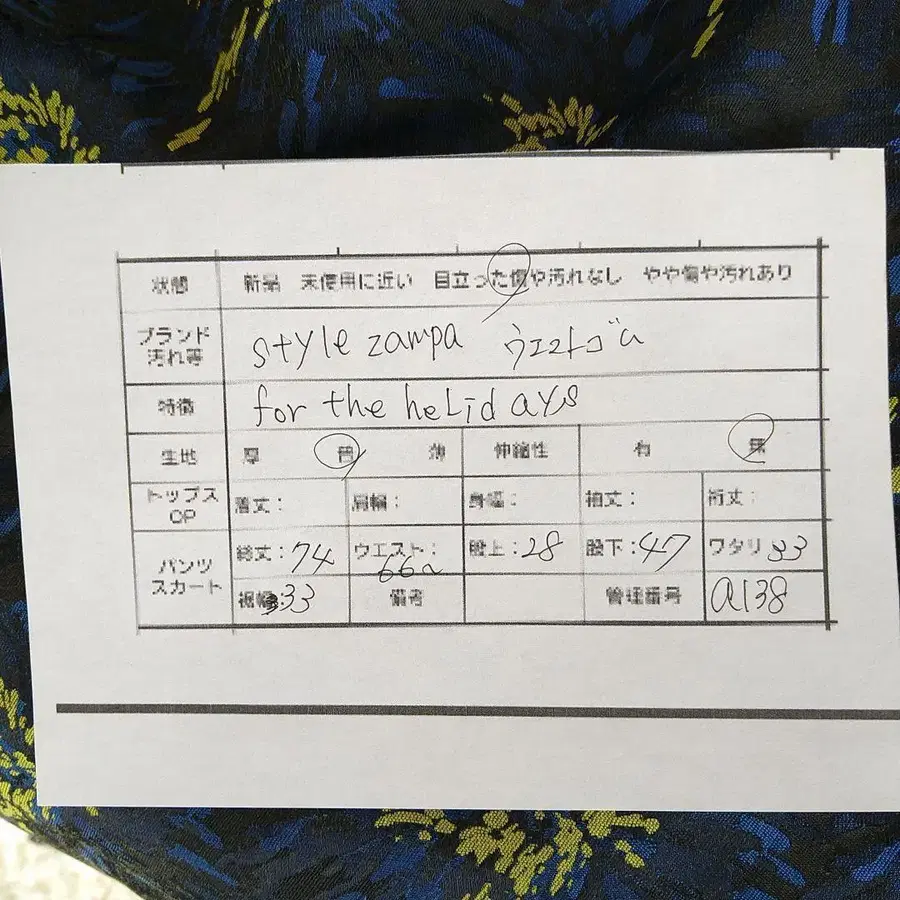 状態 新品 未使用に近い 目立った傷や汚れなし やや傷や汚れあり
ブランド
汚れ等
style zampa ウエストゴム
特徴 for the helidays
生地 厚 普 薄 伸縮性 有 無
トップス
OP
着丈: 肩幅: 身幅: 袖丈: 裄丈:
パンツ
スカート
総丈:74 ウエスト:66~ 股上:28 股下:47 ワタリ 33
裾幅:33 備考 管理番号 a138